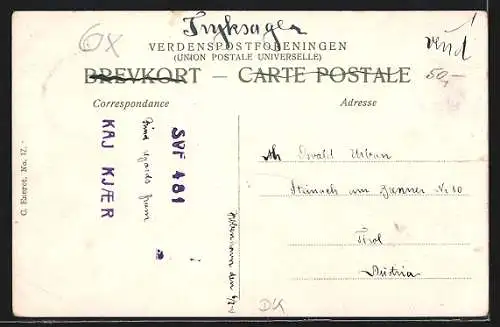 6x
Tryksager
vend
50,-
VERDENSPOSTFORENINGEN
(UNION POSTALE UNIVERSELLE)
BREVKORT — CARTE POSTALE
Correspondance
Adresse
SVF 481
Kind regards from
KAJ KJÆR
København den
Oswald Urban
Steinach am Brenner Nr 10
Tirol
Austria
C. Eneret. No. 17.
DK